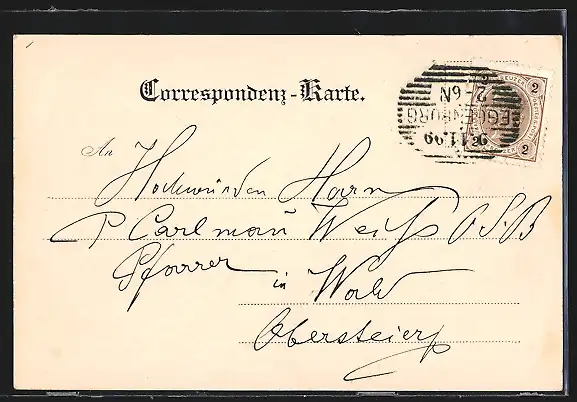 Correspondenz-Karte.
2 KREUZER 2
EGGENBURG
9.11.99
2-6N
An
Hochwürden Herrn
P Carlman Weiß OSB
Pfarrer in Wald
Obersteier